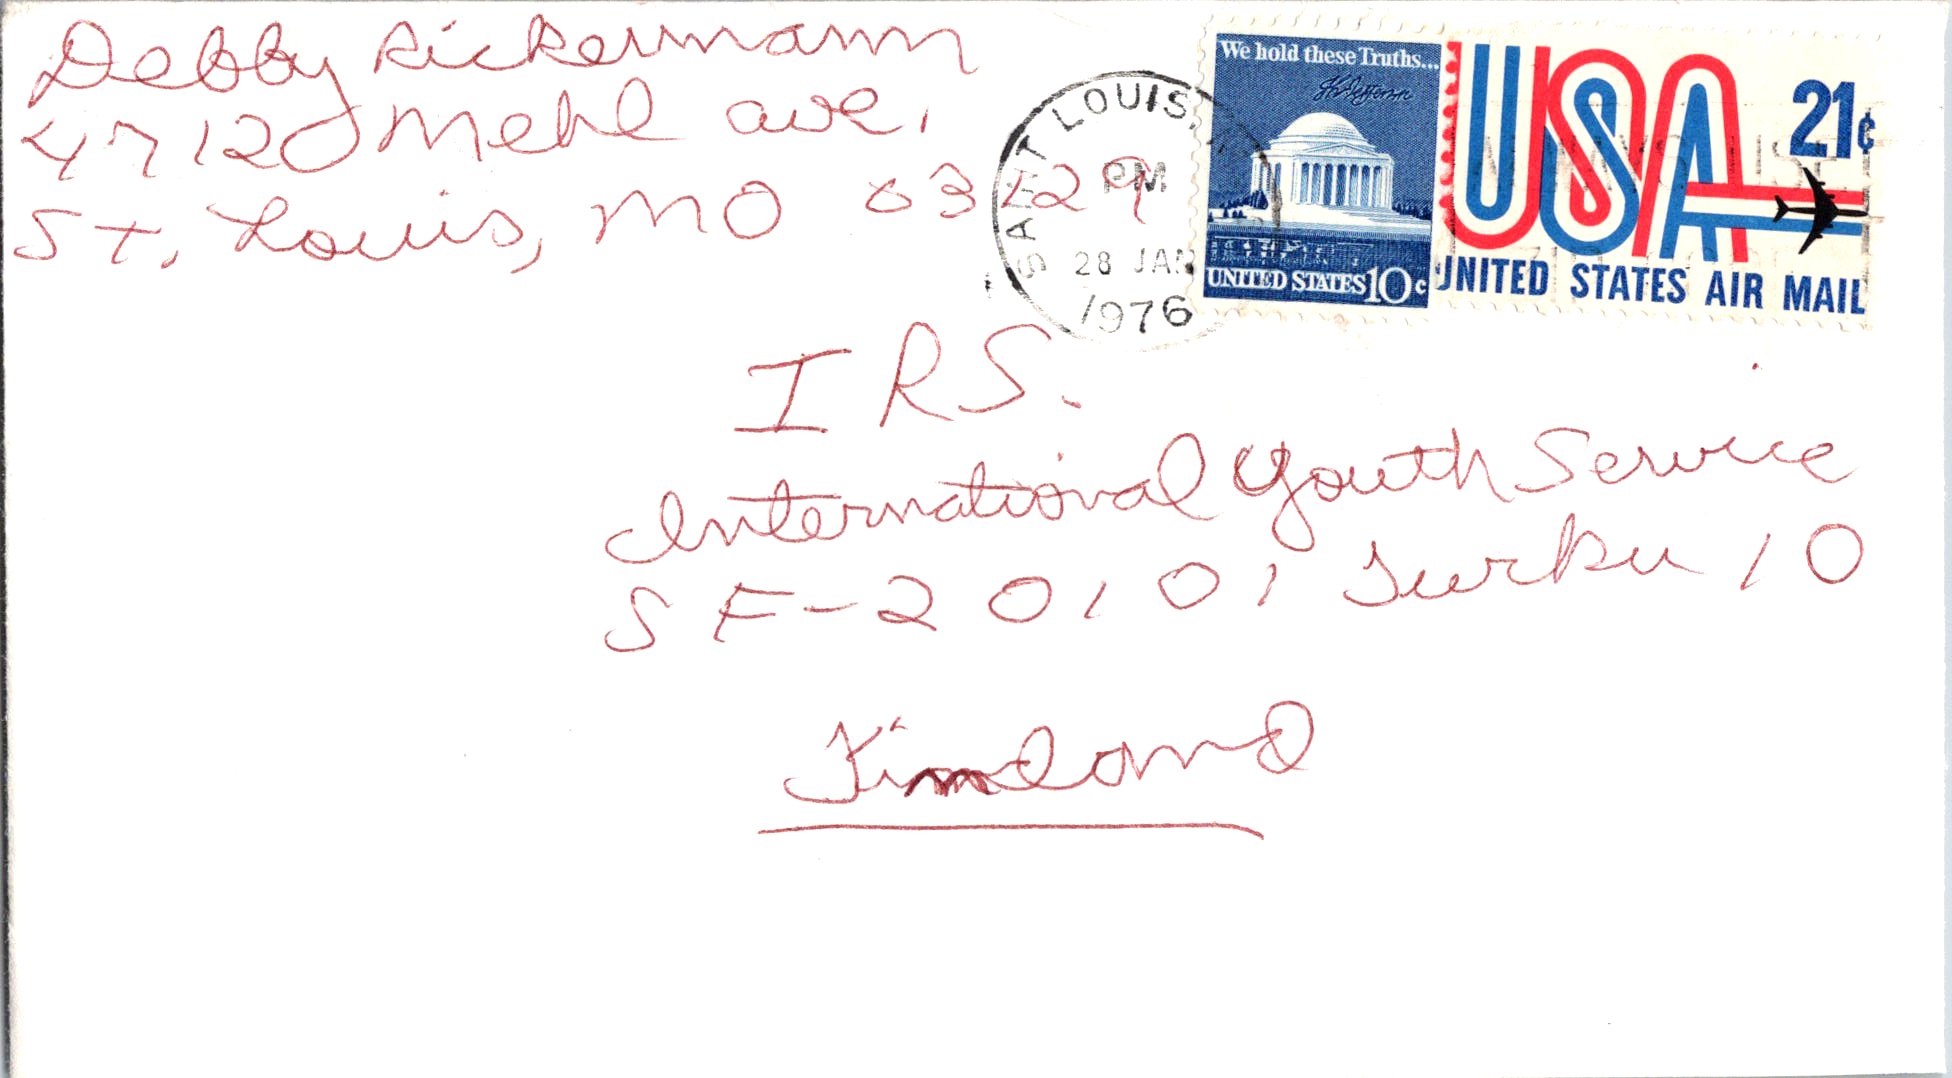 Debby Rickermann
4712 Mehl ave.
St. Louis, MO 63129
SAINT LOUIS,
PM
28 JAN
1976
We hold these Truths...
Th Jefferson
UNITED STATES 10c
USA
21¢
UNITED STATES AIR MAIL
IRS.
International Youth Service
SF-20101 Turku 10
Finland